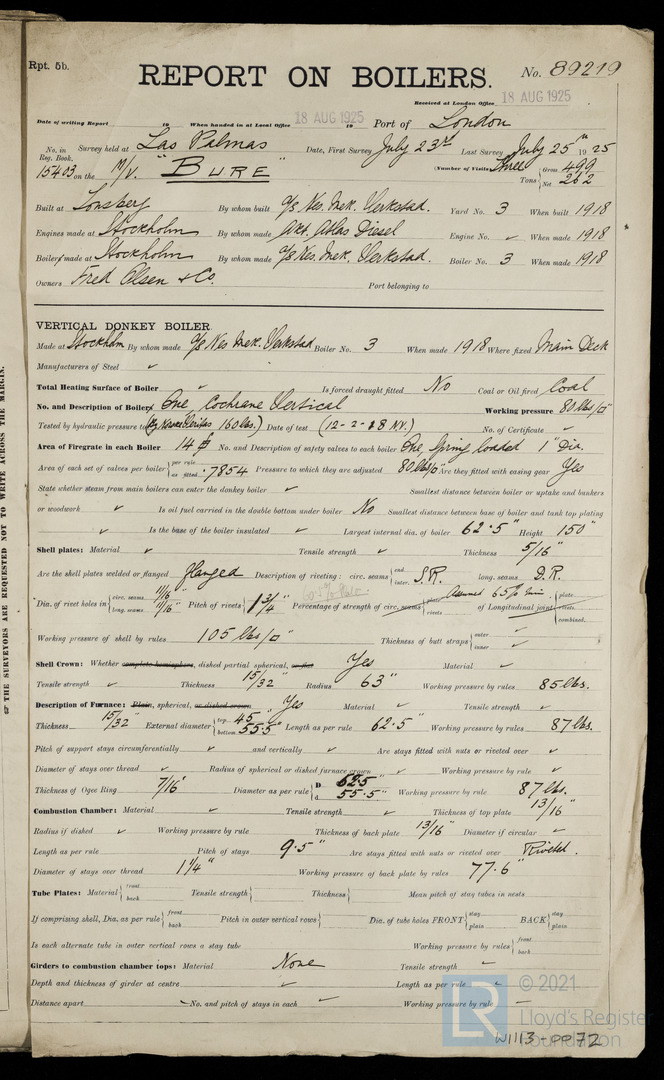 Rpt. 5b.
REPORT ON BOILERS.
No. 89219
Received at London Office 18 AUG 1925
Date of writing Report 19 When handed in at Local Office 18 AUG 1925 19 Port of London
No. in Reg. Book. Survey held at Las Palmas Date, First Survey July 23rd Last Survey July 25th 1925
(Number of Visits Three)
15403 on the M/V. "BURE" Tons { Gross 499 Net 262
Built at Tonsberg By whom built A/S Nes. Mek. Verkstad. Yard No. 3 When built 1918
Engines made at Stockholm By whom made Akt. Atlas Diesel Engine No. ✓ When made 1918
Boilers made at Stockholm By whom made A/S Nes. Mek. Verkstad. Boiler No. 3 When made 1918
Owners Fred Olsen & Co. Port belonging to
VERTICAL DONKEY BOILER.
Made at Stockholm By whom made A/S Nes Mek. Verkstad Boiler No. 3 When made 1918 Where fixed Main Deck
Manufacturers of Steel ✓
Total Heating Surface of Boiler ✓ Is forced draught fitted No Coal or Oil fired Coal
No. and Description of Boilers One Cochrane Vertical Working pressure 80 lbs/□"
Tested by hydraulic pressure to (By Norske Veritas 160 lbs.) Date of test (12-2-18 N.V.) No. of Certificate ✓
Area of Firegrate in each Boiler 14 No. and Description of safety valves to each boiler One Spring loaded 1" Dia.
Area of each set of valves per boiler { per rule as fitted .7854 Pressure to which they are adjusted 80 lbs/□" Are they fitted with easing gear Yes
State whether steam from main boilers can enter the donkey boiler ✓ Smallest distance between boiler or uptake and bunkers
or woodwork ✓ Is oil fuel carried in the double bottom under boiler No Smallest distance between base of boiler and tank top plating
✓ Is the base of the boiler insulated ✓ Largest internal dia. of boiler 62.5" Height 150"
Shell plates: Material ✓ Tensile strength ✓ Thickness 5/16"
Are the shell plates welded or flanged flanged Description of riveting: circ. seams { end inter. S.R. long. seams D.R.
Dia. of rivet holes in { circ. seams 11/16" long. seams 11/16" Pitch of rivets { 1 3/4" Percentage of strength of circ. seams { plate rivets Assumed 65% of Longitudinal joint { plate. rivets. combined.
Working pressure of shell by rules 105 lbs/□" Thickness of butt straps { outer ✓ inner ✓
Shell Crown: Whether complete hemisphere, dished partial spherical, or flat Yes Material ✓
Tensile strength ✓ Thickness 15/32" Radius 63" Working pressure by rules 85 lbs.
Description of Furnace: Plain, spherical, or dished crown Yes Material ✓ Tensile strength ✓
Thickness 15/32" External diameter { top 45" bottom 55.5" Length as per rule 62.5" Working pressure by rules 87 lbs.
Pitch of support stays circumferentially ✓ and vertically ✓ Are stays fitted with nuts or riveted over ✓
Diameter of stays over thread ✓ Radius of spherical or dished furnace crown ✓ Working pressure by rule ✓
Thickness of Ogee Ring 7/16" Diameter as per rule { D 62.5" d 55.5" Working pressure by rule 87 lbs.
Combustion Chamber: Material ✓ Tensile strength ✓ Thickness of top plate 13/16"
Radius if dished ✓ Working pressure by rule Thickness of back plate 13/16" Diameter if circular ✓
Length as per rule Pitch of stays 9.5" Are stays fitted with nuts or riveted over Riveted.
Diameter of stays over thread 1 1/4" Working pressure of back plate by rules 77.6"
Tube Plates: Material { front back Tensile strength { Thickness { Mean pitch of stay tubes in nests
If comprising shell, Dia. as per rule { front back Pitch in outer vertical rows { Dia. of tube holes FRONT { stay plain BACK { stay plain
Is each alternate tube in outer vertical rows a stay tube Working pressure by rules { front back
Girders to combustion chamber tops: Material None Tensile strength ✓
Depth and thickness of girder at centre ✓ Length as per rule ✓
Distance apart ✓ No. and pitch of stays in each ✓ Working pressure by rule ✓
THE SURVEYORS ARE REQUESTED NOT TO WRITE ACROSS THE MARGIN.
LR © 2021
Lloyd's Register
Foundation
W1113-0072